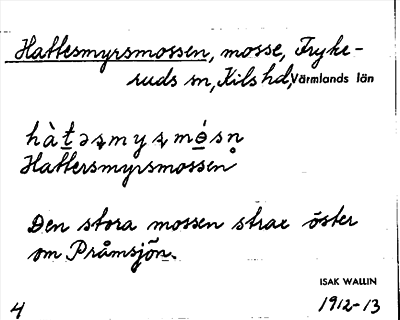 Hattesmyrsmossen, mosse, Fryke-
ruds sn, Kils hd, Värmlands län
hàt̲əʂmyʂmó̲sn̥
Hattersmyrsmossen
Den stora mossen strax öster
om Pråmsjön.
ISAK WALLIN
4 1912-13